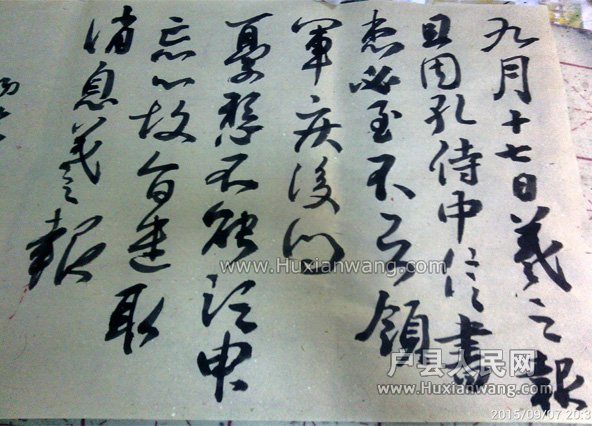 九月十七日羲之報
且因孔侍中信書
想必至不知領
軍疾後問
憂懸不能須臾
忘心故旨遣取
消息羲之報
www.Huxianwang.com
户县人民网
www.Huxianwang.com
2015/09/07 20:3